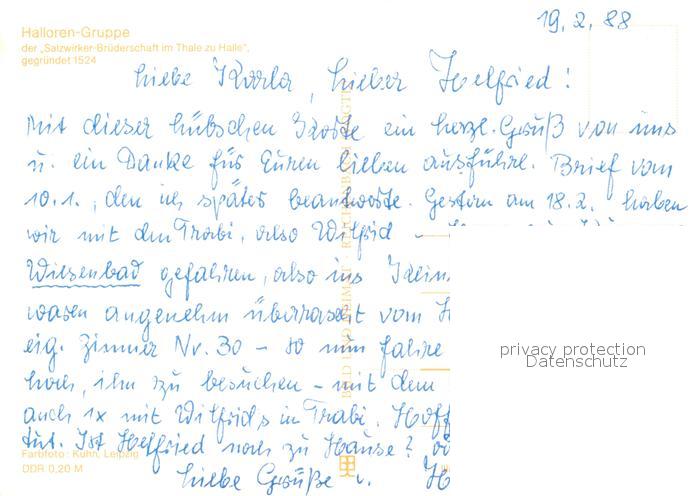 19.2.88
Halloren-Gruppe
der „Salzwirker-Brüderschaft im Thale zu Halle",
gegründet 1524
Liebe Karla, lieber Helfried!
Mit dieser hübschen Karte ein herzl. Gruß von uns
u. ein Danke für Euren lieben ausführl. Brief vom
10.1., den ich später beantworte. Gestern am 18.2. haben
wir mit dem Trabi, also Wilfrid -
Wiesenbad gefahren, also ins
waren angenehm überrascht vom
eig. Zimmer Nr. 30 - so nun fahre
hoch, ihn zu besuchen - mit dem
auch 1x mit Wilfrids in Trabi. Hoff
tut. Ist Helfried noch zu Hause?
Liebe Grüße
Farbfoto: Kuhn, Leipzig
DDR 0,20 M
BILD UND HEIMAT · REICHENBACH (VOGTL)
privacy protection
Datenschutz